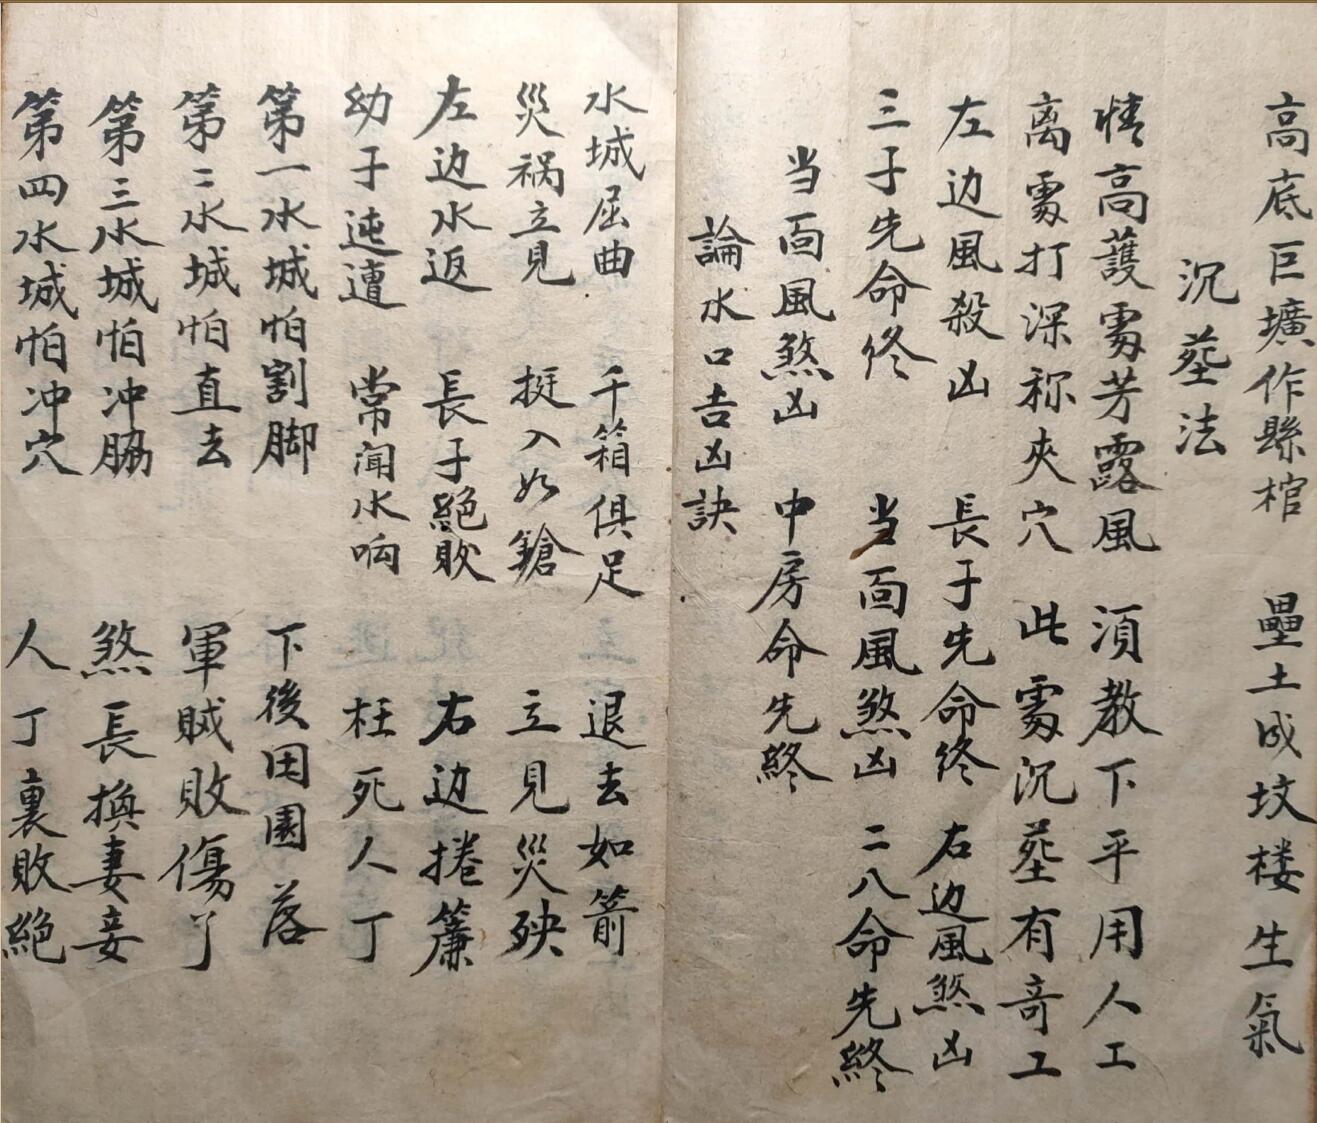 高底巨壙作縣棺　壘土成坟楼生氣
沉塟法
情高護䖏芳露風　湏教下平用人工
离䖏打深称夾穴　此䖏沉塟有竒工
左边風殺凶　長子先命终　右边風煞凶
三子先命终　当面風煞凶　二八命先終
当面風煞凶　中房命先終
論水口吉凶訣
水城屈曲　千箱俱足　退去如箭
災祸立見　挺入如鎗　立見災殃
左边水返　長子絕敗　右边捲簾
幼子迍遭　常闻水响　枉死人丁
第一水城怕割脚　下後田園落
第二水城怕直去　軍賊敗傷丫
第三水城怕冲脇　煞長換妻妾
第四水城怕冲穴　人丁裏敗絕